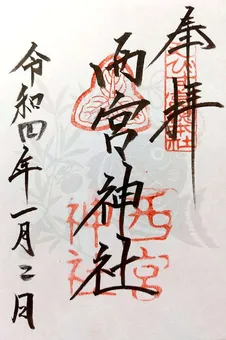 奉拝
西宮神社
西宮
神社
令和四年一月二日